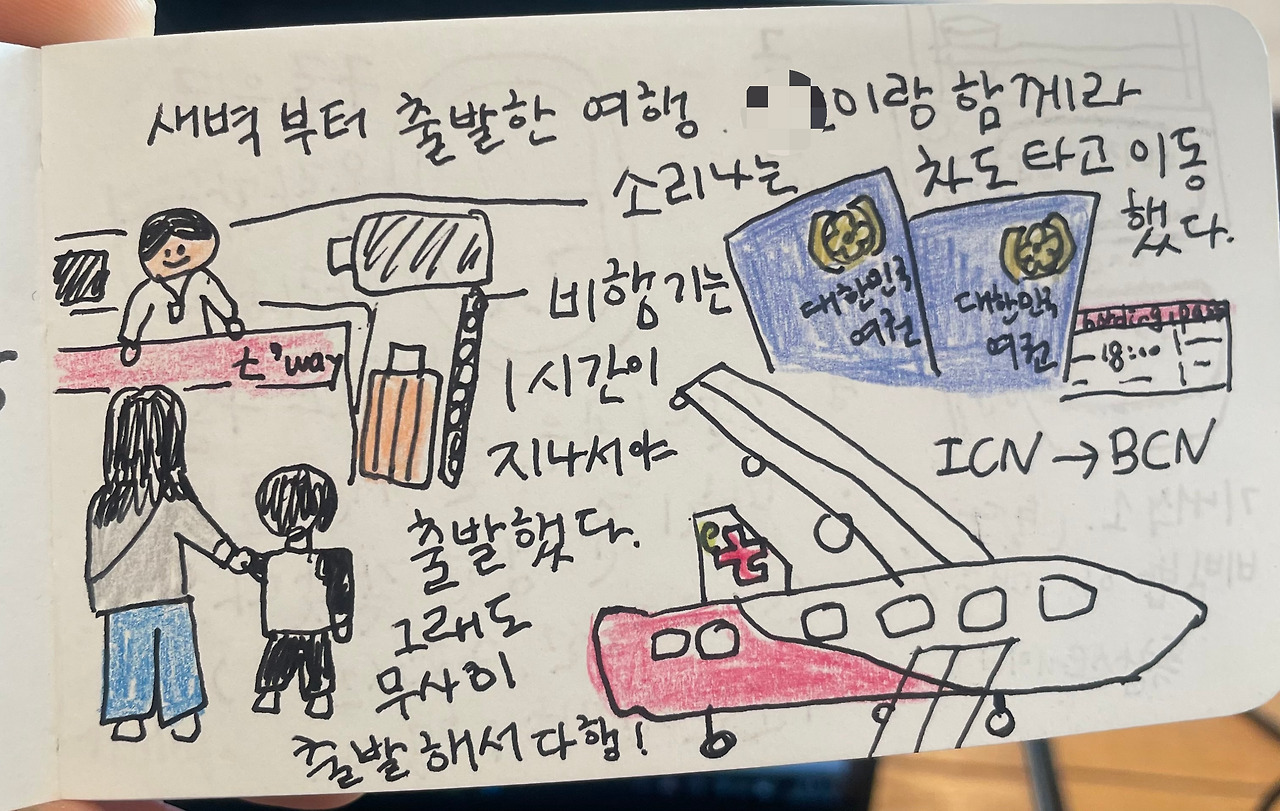 새벽부터 출발한 여행. 이랑 함께라
소리나는 차도 타고 이동
했다.
비행기는
1시간이
지나서야
출발했다.
그래도
무사히
출발해서 다행!
t'way
대한민국
여권
대한민국
여권
boarding pass
18:00
ICN → BCN
t